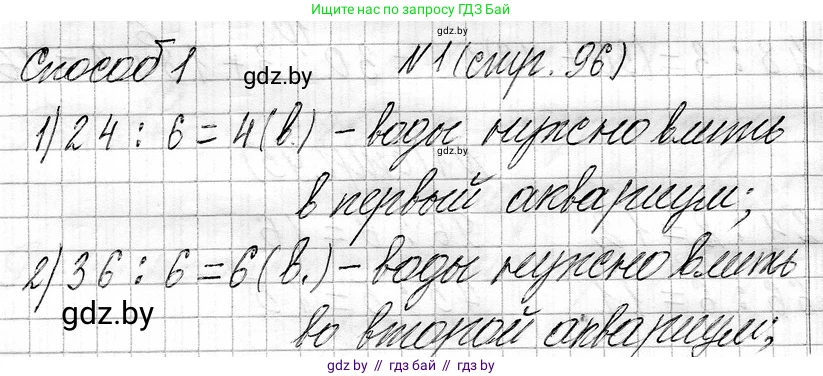 найти нас по запросу ГДЗ Бай
Способ 1 gdz.by №1 (стр. 96)
gdz.by
1) 24 : 6 = 4 (в.) - воды нужно влить
gdz.by
в первый аквариум;
2) 36 : 6 = 6 (в.) - воды нужно влить
gdz.by
во второй аквариум;
gdz.by // гдз бай // gdz by